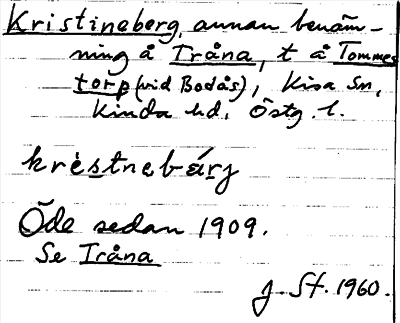 Kristineberg, annan benäm-
ning å Tråna, t å Tommes
torp (vid Bodås), Kisa sn,
Kinda hd, Östg. l.
krèstnebárj
Öde sedan 1909.
Se Tråna
J. St. 1960.